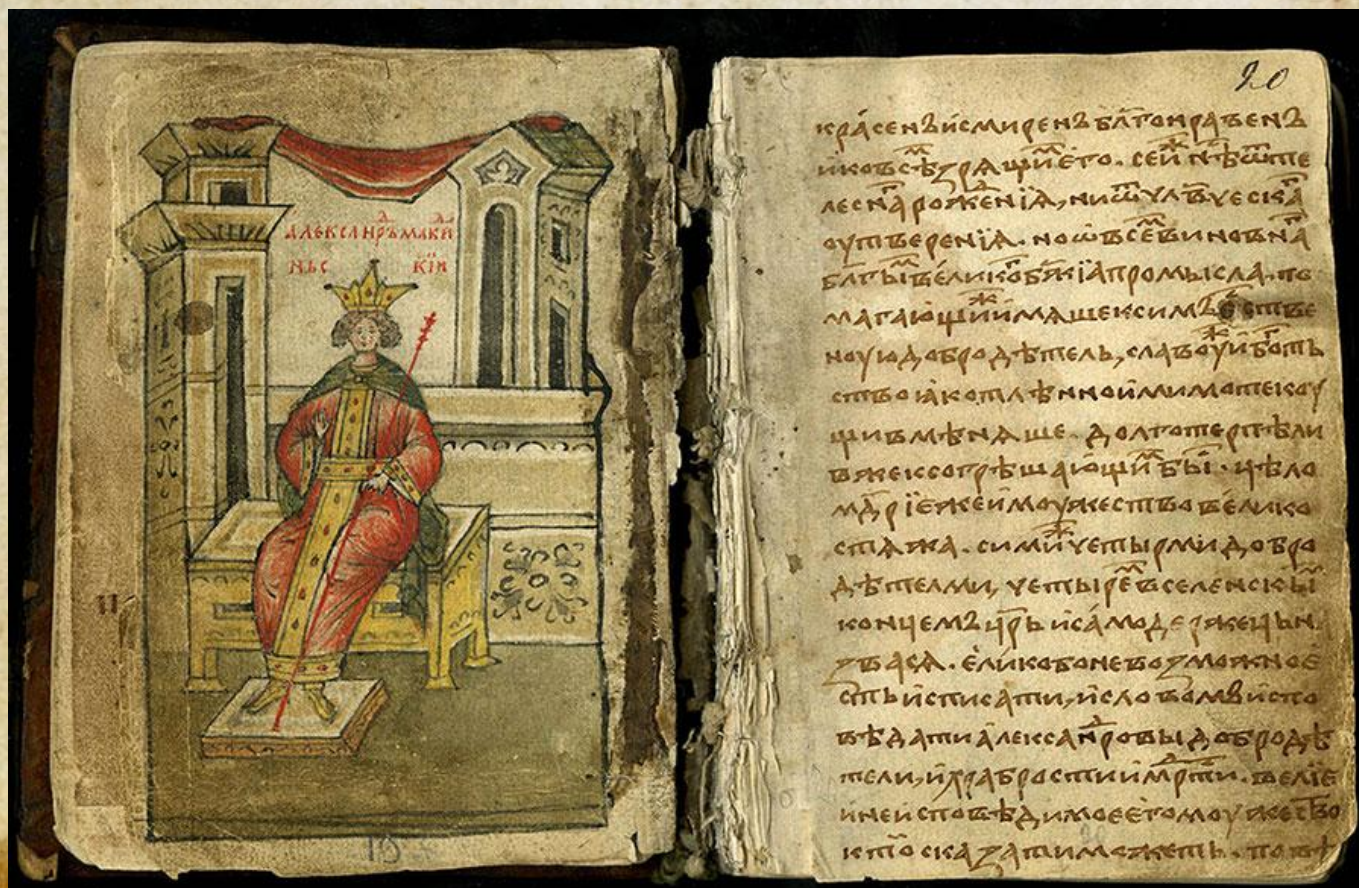 а҆леѯанⷣръ макиⷣ
ньс кїи
20
кра́сенъ и҆смиренъ бл҃гонравенъ
иковсѣⷨ зрѧщиⷨ є҆го. сей жⷷ нѣ ѿ те
леснаⷢ рожⷣенїѧ, ни ѿ чл҃вческаⷢ
оутверенїѧ. но ѡ҆ всеⷨ виновнаⷢ
бл҃гыⷨ великоⷢ бж҃їа промысла. по
магающиⷨ имѧше ксимъ є҆стве
ноую добродѣтель, славоу жⷷ и҆ боⷢть
ство ꙗ҆ко тлѣнно и҆ мимотекоу
щи вмѣнѧше. долготерпѣли
вже ксогрѣшающиⷨ бы́. цѣло
мⷣрїе же и҆моужество велико
стѧжа. сими жⷷ четырми добро
дѣтелми, четыреⷨ вселенскыⷨ
концемъ цр҃ь и҆са́модержець н
зва сѧ. є҆лико бо невозможно є҆
сть и҆списати, и҆словомъ и҆спо
вѣдати а҆лексанⷣровы добродѣ
тели, и҆храбрости и҆ мⷣрⷭти. велїе
и҆неисповѣдимое є҆го моужеⷭтво
кто сказати можеть. по вѣ